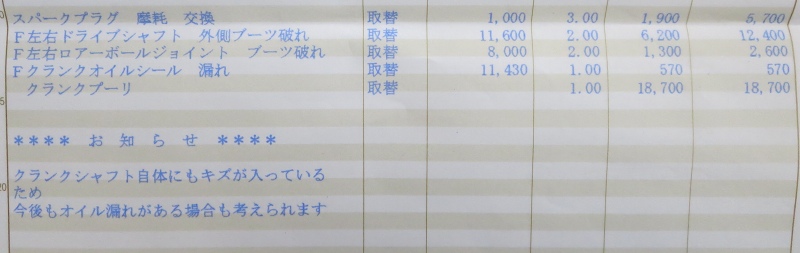 スパークプラグ　摩耗　交換 取替 1,000 3.00 1,900 5,700
F左右ドライブシャフト　外側ブーツ破れ 取替 11,600 2.00 6,200 12,400
F左右ロアーボールジョイント　ブーツ破れ 取替 8,000 2.00 1,300 2,600
Fクランクオイルシール　漏れ 取替 11,430 1.00 570 570
クランクプーリ 取替 1.00 18,700 18,700
＊＊＊＊　お　知　ら　せ　＊＊＊＊
クランクシャフト自体にもキズが入っている
20 ため
今後もオイル漏れがある場合も考えられます